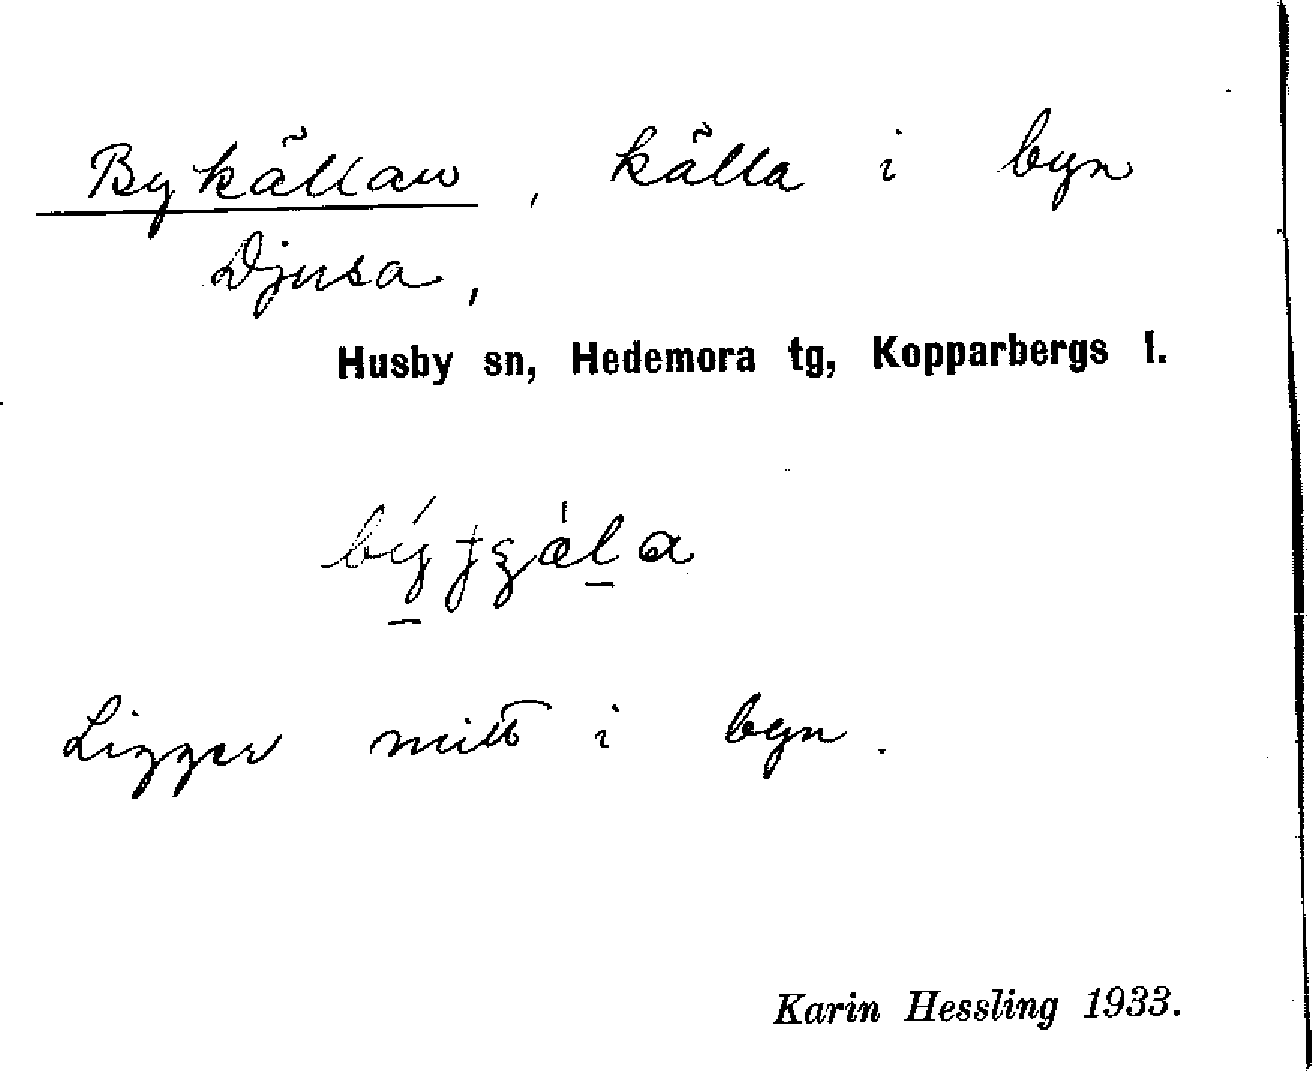 Bykällan, källa i byn
Djusa,
Husby sn, Hedemora tg, Kopparbergs l.
Ligger mitt i byn.
Karin Hessling 1933.